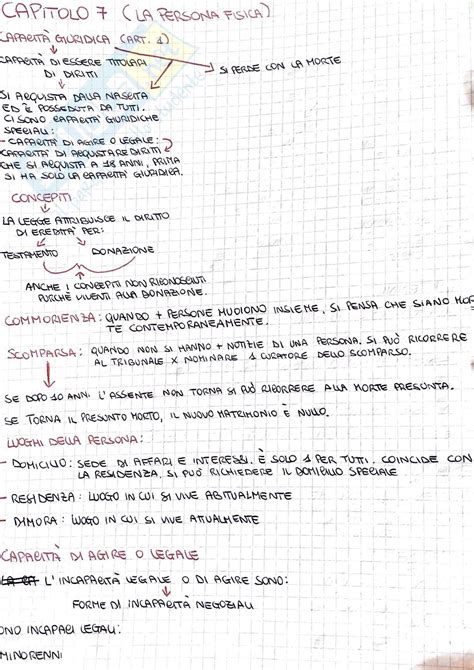 CAPITOLO 7 (LA PERSONA FISICA)
CAPACITÀ GIURIDICA (ART. 1)
CAPACITÀ DI ESSERE TITOLARI
DI DIRITTI
SI PERDE CON LA MORTE
SI ACQUISTA DALLA NASCITA
ED È POSSEDUTA DA TUTTI.
CI SONO CAPACITÀ GIURIDICHE
SPECIALI:
- CAPACITÀ DI AGIRE O LEGALE:
CAPACITÀ DI ACQUISTARE DIRITTI
CHE SI ACQUISTA A 18 ANNI, PRIMA
SI HA SOLO LA CAPACITÀ GIURIDICA.
CONCEPITI
LA LEGGE ATTRIBUISCE IL DIRITTO
DI EREDITÀ PER:
TESTAMENTO DONAZIONE
ANCHE I CONCEPITI NON RICONOSCIUTI
PURCHÈ VIVENTI ALLA DONAZIONE.
COMMORIENZA: QUANDO + PERSONE MUOIONO INSIEME, SI PENSA CHE SIANO MOR
TE CONTEMPORANEAMENTE.
SCOMPARSA: QUANDO NON SI HANNO + NOTIZIE DI UNA PERSONA. SI PUÒ RICORRERE
AL TRIBUNALE X NOMINARE 1 CURATORE DELLO SCOMPARSO.
SE DOPO 10 ANNI L'ASSENTE NON TORNA SI PUÒ RICORRERE ALLA MORTE PRESUNTA.
SE TORNA IL PRESUNTO MORTO, IL NUOVO MATRIMONIO È NULLO.
LUOGHI DELLA PERSONA:
- DOMICILIO: SEDE DI AFFARI E INTERESSI. È SOLO 1 PER TUTTI. COINCIDE CON
LA RESIDENZA. SI PUÒ RICHIEDERE IL DOMICILIO SPECIALE
- RESIDENZA: LUOGO IN CUI SI VIVE ABITUALMENTE
- DIMORA: LUOGO IN CUI SI VIVE ATTUALMENTE
CAPACITÀ DI AGIRE O LEGALE
L'INCAPACITÀ LEGALE O DI AGIRE SONO:
FORME DI INCAPACITÀ NEGOZIALI
ONO INCAPACI LEGALI:
MINORENNI